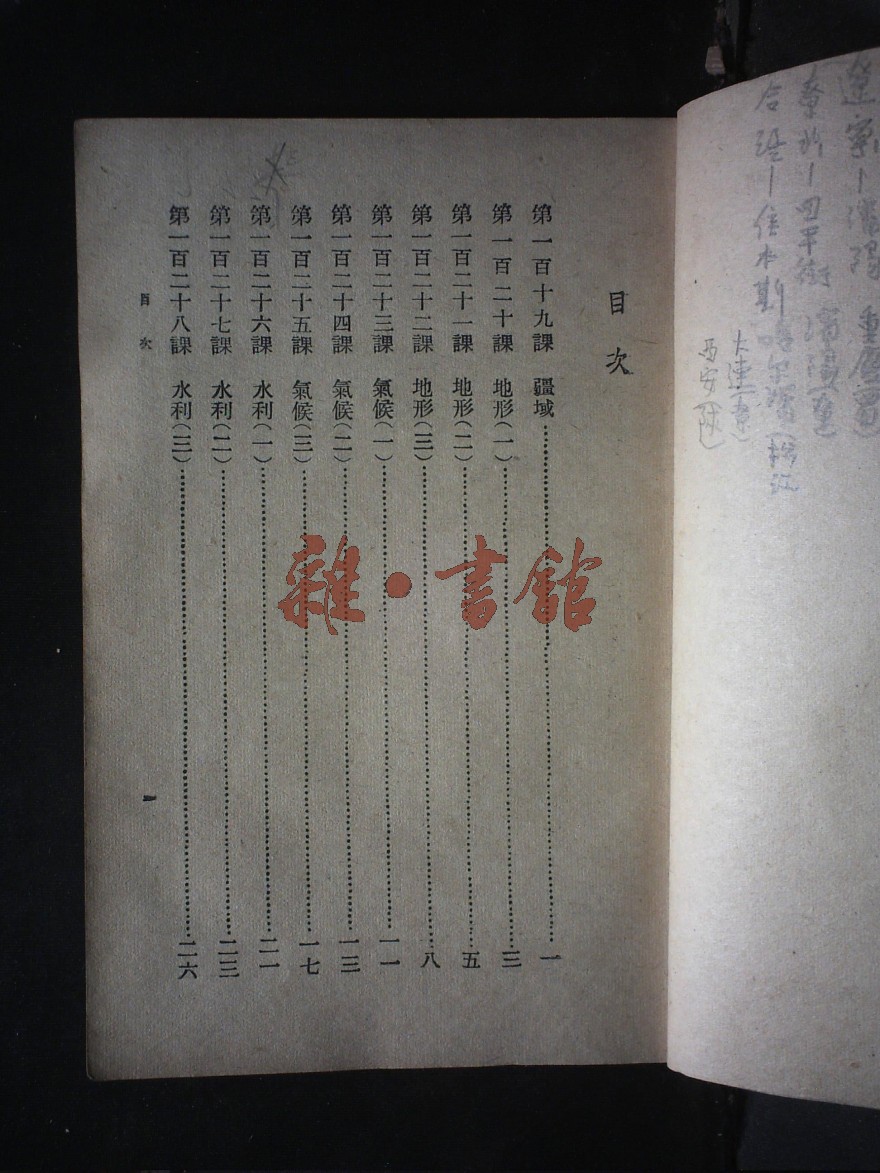 目次
第一百十九課　疆域…………一
第一百二十課　地形(一)…………三
第一百二十一課　地形(二)…………五
第一百二十二課　地形(三)…………八
第一百二十三課　氣候(一)…………一一
第一百二十四課　氣候(二)…………一三
第一百二十五課　氣候(三)…………一七
第一百二十六課　水利(一)…………二一
第一百二十七課　水利(二)…………二三
第一百二十八課　水利(三)…………二六
目次　一
雜·書館
四平街
合江—佳木斯
大連
西安